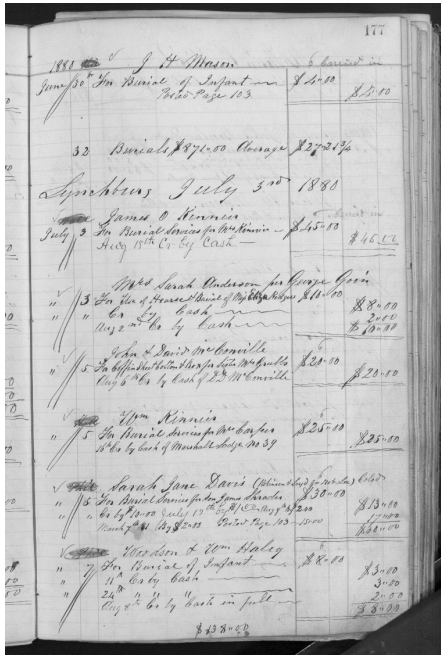 177
1880 J H Mason 6 Carried in
June 30th For Burial of Infant $4=00
Posted Page 103 $4=00
32 Burials, $871=00 Average $27=21 3/4
Lynchburg July 3rd 1880
James O Kinnier
July 3 For Burial Services for Mrs Kinnier $45=00
Aug 18th Cr By Cash $45=00
Mrs Sarah Anderson per George Goin
" 3 For Use of Hearse Burial of $10=00
" Cr by Cash $8=00
Aug 2nd Cr by Cash 2=00
$10=00
John & David McConville
" 5 For Coffin Box for Sister Mrs $20=00
Aug 6th Cr by Cash of McConville $20=00
Wm Kinnier
" 5 For Burial Services for Mrs $25=00
Cr by Cash of Marshall Lodge No 39 $25=00
Sarah Jane Davis Cold
" 5 For Burial Services for Son James $30=00
" Cr by $13=00 July $13=00
March 9th By $2=00 Posted Page 103 15=00 17=00
$30=00
Woodson & Wm Haley
" 7 For Burial of Infant $8=00
" 11th Cr by Cash $3=00
" 24th " " " 3=00
Aug 8th Cr by Cash in full 2=00
$8=00
$138=00